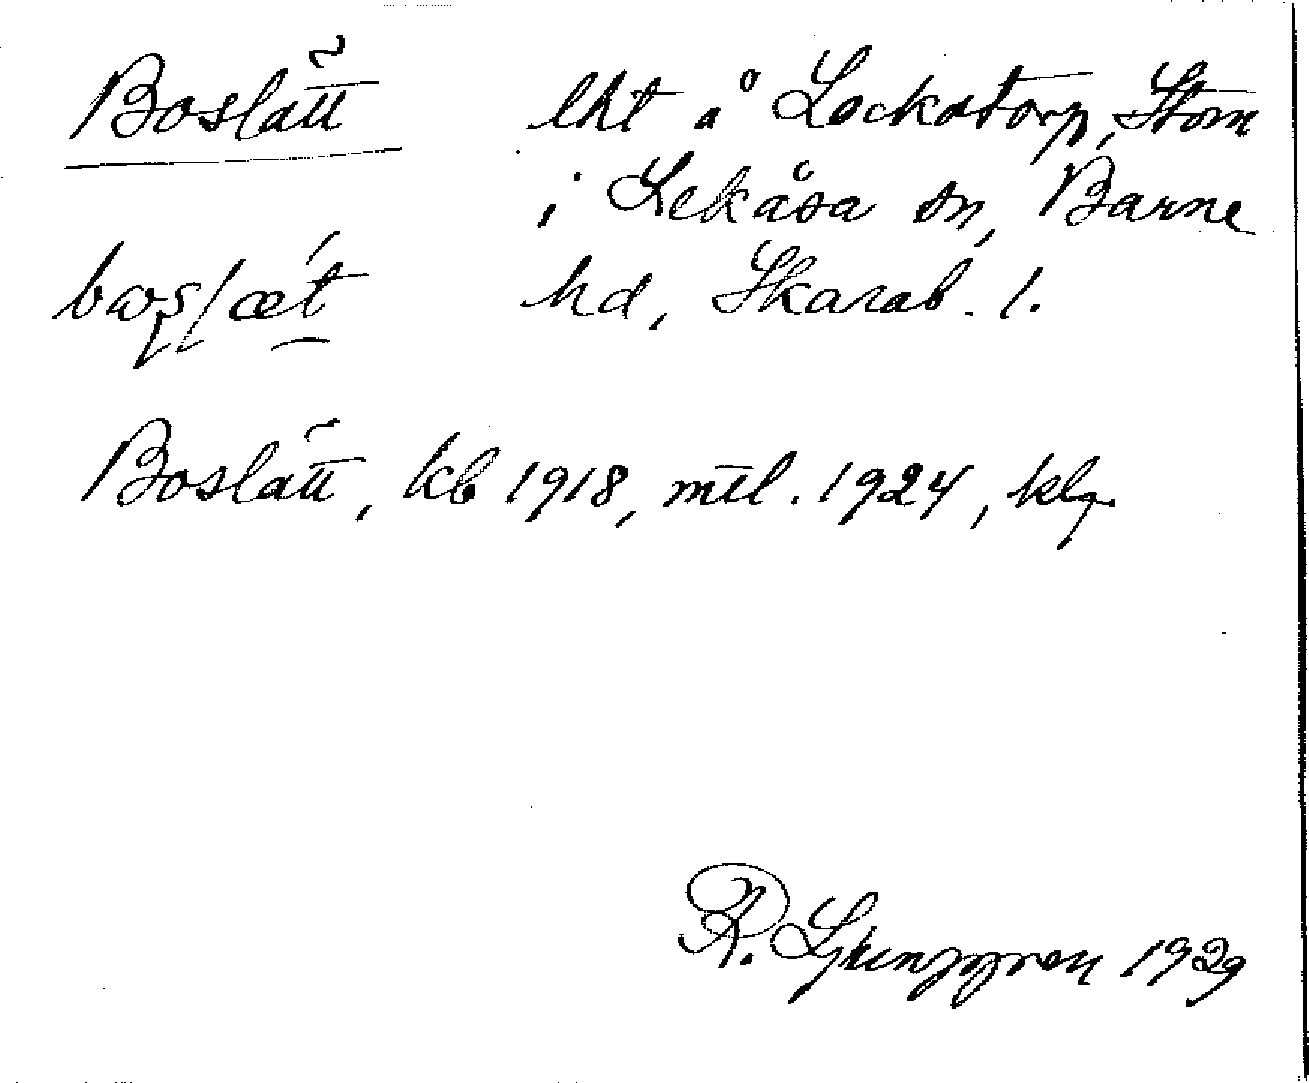 Boslätt lht å Lockatorp, Stom
i Lekåsa sn, Barne
hd, Skarab. l.
Boslätt, kb 1918, mtl. 1924, klg.
R. Ljunggren 1929